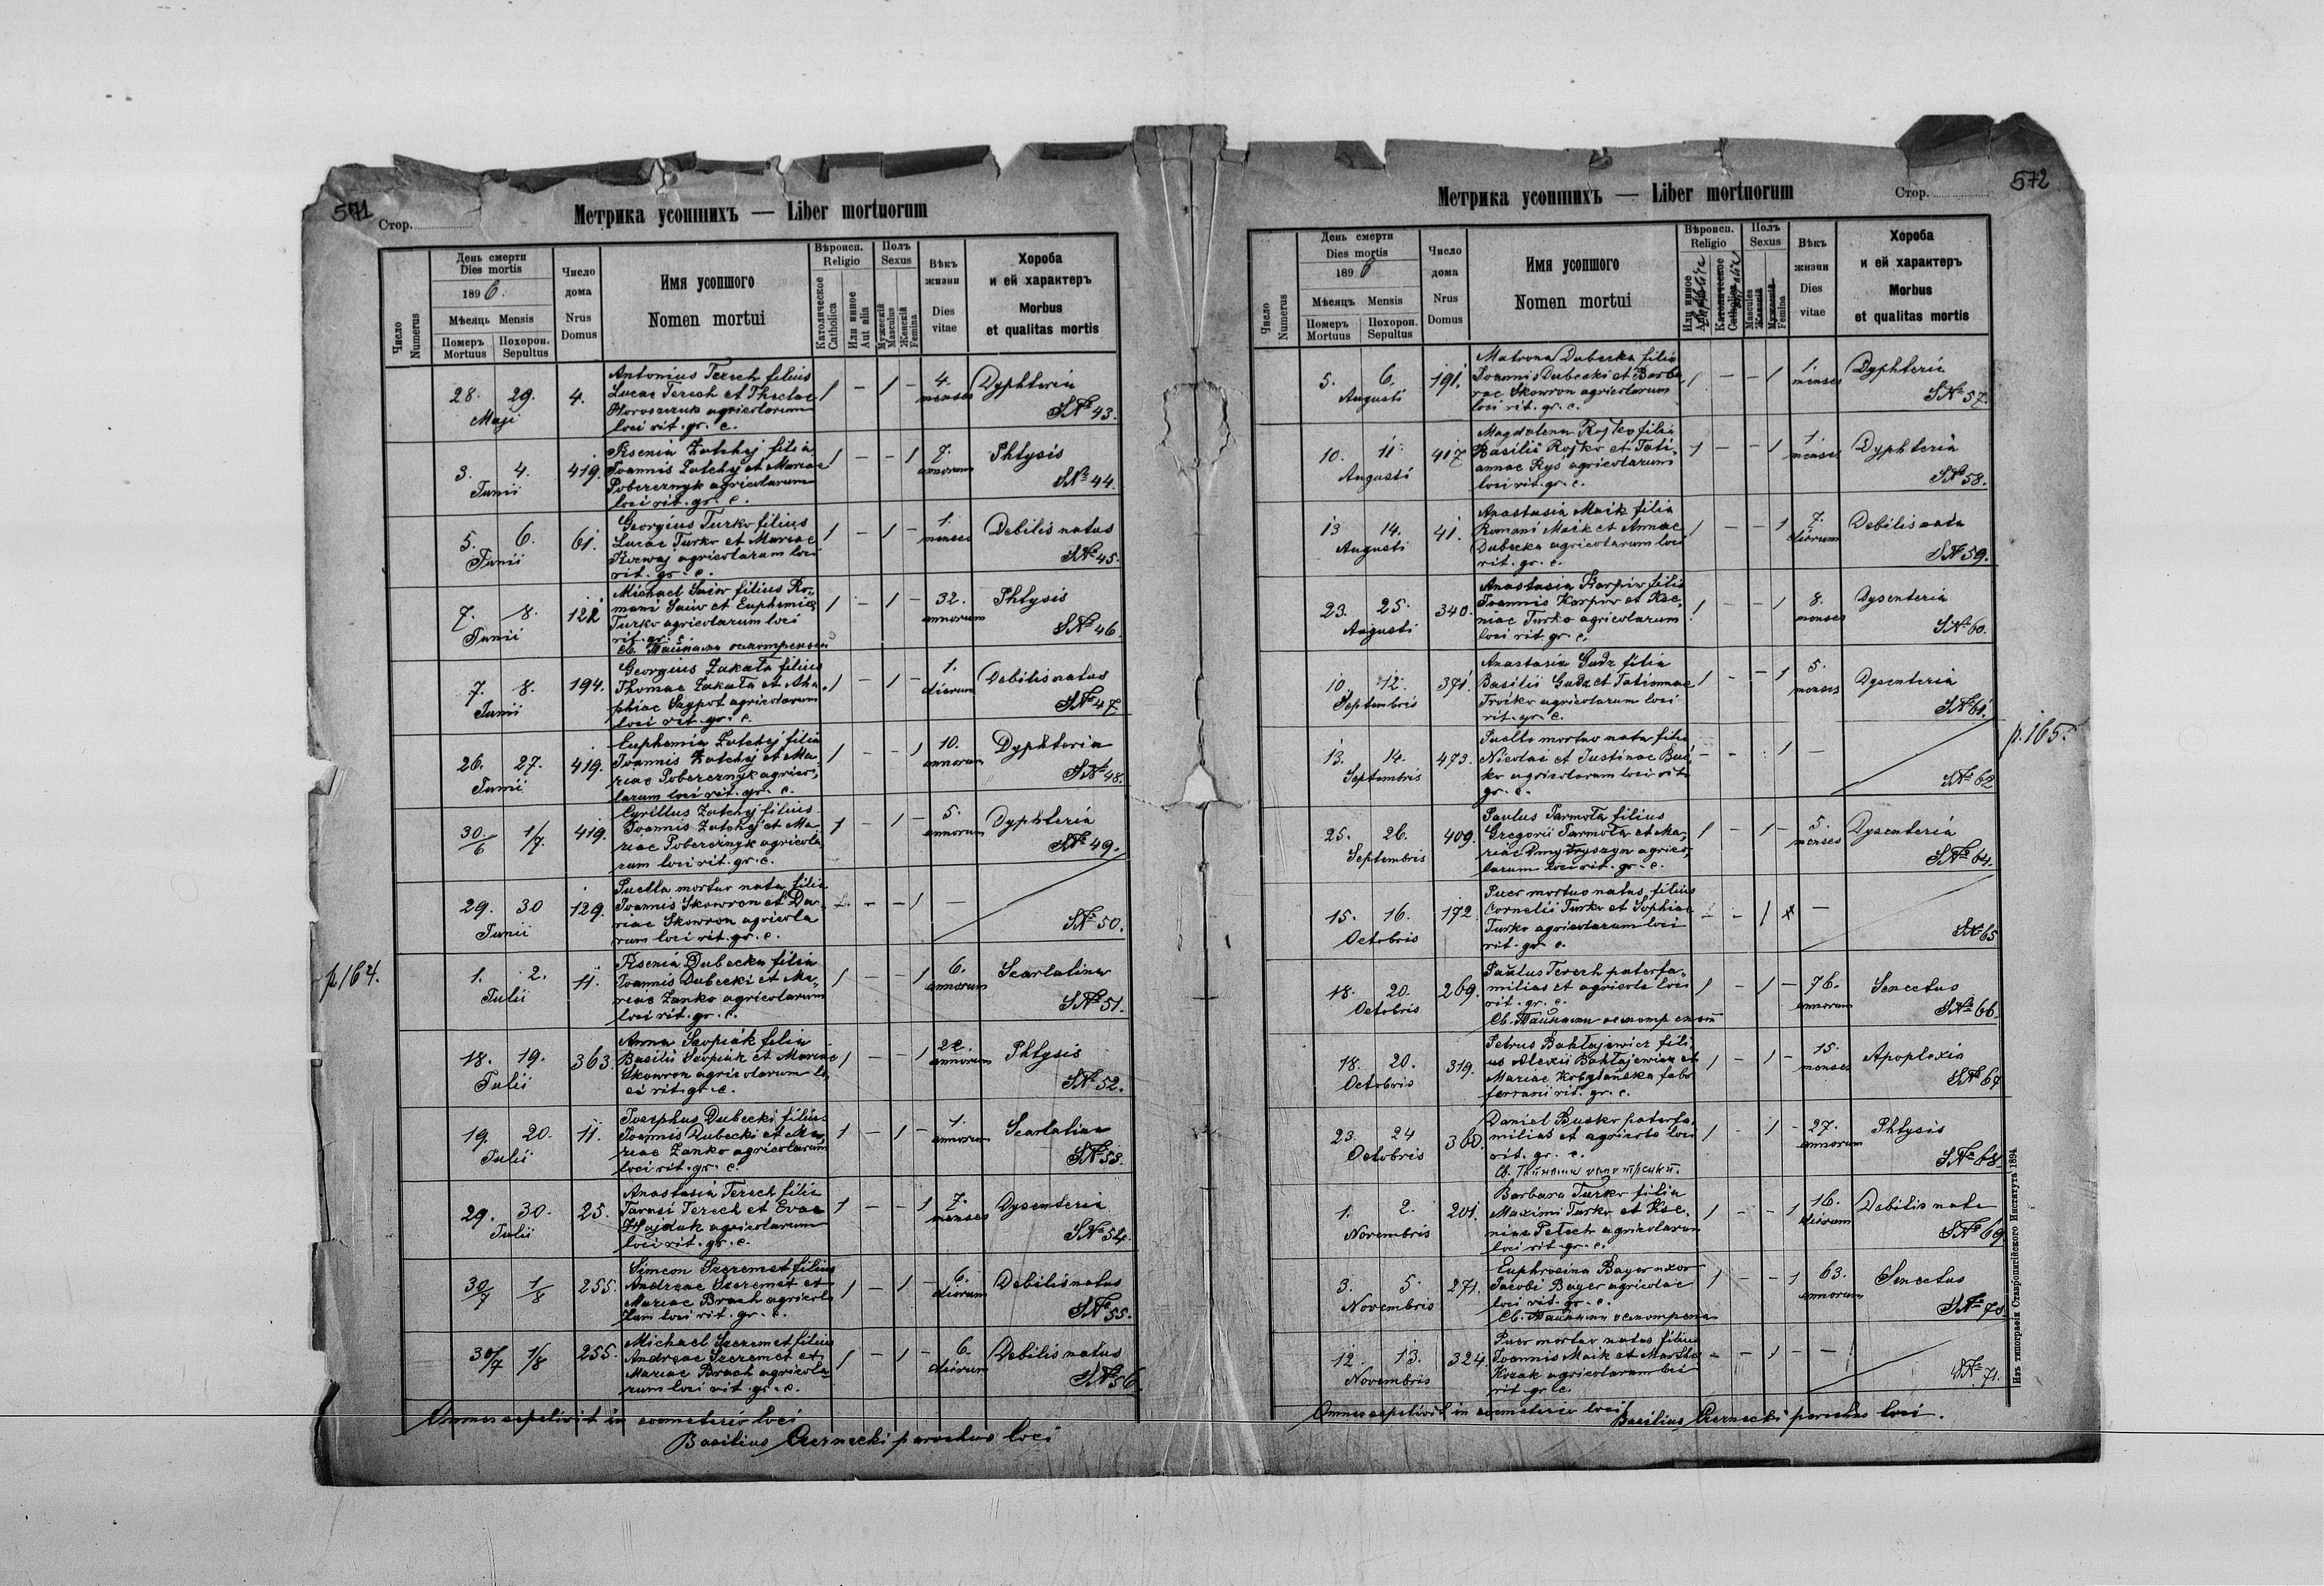 571
Стор.
Метрика усопшихъ — Liber mortuorum
Число
Numerus
День смерти
Dies mortis
1896.
Мѣсяць Mensis
Померъ
Mortuus
Похорон.
Sepultus
Число
дома
Nrus
Domus
Имя усопшого
Nomen mortui
Вѣроисп.
Religio
Католическое
Catholica
Или инное
Aut alia
Полъ
Sexus
Мужескій
Masculus
Женскій
Femina
Вѣкъ
жизни
Dies
vitae
Хороба
и ей характеръ
Morbus
et qualitas mortis
28. 29. 4. Antonius Terech filius 1 – 1 – 4. Dyphteria
Maji Lucae Terech et Theclae menses
agricolarum № 43.
loci rit. gr. c.
3. 4. 419. Ksenia Zatchej filia 1 – – 1 7. Phtysis
Junii Joannis Zatchej et Mariae annorum
Pobereznyk agricolarum № 44.
loci rit. gr. c.
5. 6. 61. Georgius Turko filius 1 – 1 – 1. Debilis natus
Junii Lucae Turko et Mariae menses
agricolarum loci № 45.
rit. gr. c.
7. 8. 122 Michael Saiw filius Ro- 1 – 1 – 32. Phtysis
Junii mani Saiw et Euphemiae annorum
Turko agricolarum loci № 46.
rit. gr. c.
Св. Тайнами
7. 8. 194. Georgius Zakała filius 1 – 1 – 1. Debilis natus
Junii Thomae Zakała et Aha- dierum
phiae Szypot agricolarum № 47
loci rit. gr. c.
26. 27. 419. Euphemia Zatchej filia 1 – – 1 10. Dyphteria
Junii Joannis Zatchej et Ma- annorum
riae Pobereznyk agrico- № 48.
larum loci rit. gr. c.
30/6 1/7. 419. Cyrillus Zatchej filius 1 – 1 – 5. Dyphteria
Joannis Zatchej et Ma- annorum
riae Pobereznyk agricola- № 49.
rum loci rit. gr. c.
29. 30 129. Puella mortuo nata filia – – – 1 –
Junii Joannis Skowron et Da-
riae Skowron agricola № 50.
rum loci rit. gr. c.
p. 164.
1. 2. 11. Ksenia Dubecka filia 1 – – 1 6. Scarlatina
Julii Joannis Dubecki et Ma- annorum
riae Zanko agricolarum № 51.
loci rit. gr. c.
18. 19. 363. Anna filia 1 – – 1 annorum Phtysis
Julii Basilii et Mariae
Skowron agricolarum lo- № 52.
ci rit. gr. c.
19. 20. 11. Josephus Dubecki filius 1 – 1 – 1. Scarlatina
Julii Joannis Dubecki et Ma- annorum
riae Zanko agricolarum № 53.
loci rit. gr. c.
29. 30. 25. Anastasia Terech filia 1 – – 1 7. Dysenteria
Julii Tarasi Terech et Evae menses
Hajduk agricolarum № 54.
loci rit. gr. c.
30/7 1/8 255. Simeon Szeremet filius 1 – 1 – 6. Debilis natus
Andreae Szeremet et dierum
Mariae Brach agricola № 55.
rum loci rit. gr. c.
30/7 1/8 255. Michael Szeremet filius 1 – 1 – 6. Debilis natus
Andreae Szeremet et dierum
Mariae Brach agricola № 56.
rum loci rit. gr. c.
Omnes sepelivit in coemeterio loci
Basilius Czernecki parochus loci
572
Стор.
Метрика усопшихъ — Liber mortuorum
Число
Numerus
День смерти
Dies mortis
1896
Мѣсяцъ Mensis
Померъ
Mortuus
Похорон.
Sepultus
Число
дома
Nrus
Domus
Имя усопшого
Nomen mortui
Вѣроисп.
Religio
Или инное
Католическое
Catholica
Полъ
Sexus
Masculus
Женскій
Мужескій
Femina
Вѣкъ
жизни
Dies
vitae
Хороба
и ей характеръ
Morbus
et qualitas mortis
5. 6. 191. Matrona Dubecka filia 1 – – 1 1. Dyphteria
Augusti Joannis Dubecki et Barba- menses
rae Skowron agricolarum № 57.
loci rit. gr. c.
10. 11. 417 Magdalena Rojko filia 1 – – 1 1. Dyphteria
Augusti Basilii Rojko et Tati- menses
annae Rys agricolarum № 58.
loci rit. gr. c.
13 14. 41. Anastasia Maik filia 1 – – 1 7. Debilis nata
Augusti Romani Maik et Annae dierum
Dubecka agricolarum loci № 59.
rit. gr. c.
23. 25. 340. Anastasia Karpiw filia 1 – – 1 8. Dysenteria
Augusti Joannis Karpiw et Kse- menses
niae Turko agricolarum № 60.
loci rit. gr. c.
10. 12. 371. Anastasia Gudz filia 1 – – 1 5. Dysenteria
Septembris Basilii Gudz et Tatiannae menses
Troćko agricolarum loci № 61.
rit. gr. c.
p. 165.
13. 14. 473. Puella mortuo nata filia – – 1 –
Septembris Nicolai et Justinae Bus-
ko agricolarum loci rit. № 62
gr. c.
25. 26. 409. Paulus Jarmoła filius 1 – 1 – 5. Dysenteria
Septembris Gregorii Jarmoła et Ma- menses
riae Dmytryszyn agrico- № 64.
larum loci rit. gr. c.
15. 16. 172. Puer mortuo natus filius – – 1 –
Octobris Cornelii Turko et Sophiae
Turko agricolarum loci № 65
rit. gr. c.
18. 20. 269. Paulus Terech paterfa- 1 – 1 – 76. Senectus
Octobris milias et agricola loci annorum
rit. gr. c. № 66.
Св. Тайнами
18. 20. 319. Petrus Bahłajewicz fili- 1 – 1 – 15. Apoplexia
Octobris us Alexii Bahłajewicz et menses
Mariae Kobylańska fabr № 67
ferrarii rit. gr. c.
23. 24 360. Daniel Busko paterfa- 1 – 1 – 27. Phtysis
Octobris milias et agricola loci annorum
rit. gr. c. № 68.
Св. Тайнами
1. 2. 201. Barbara Turko filia 1 – – 1 16. Debilis nata
Novembris Maximi Turko et Kse- dierum
niae Petech agricolarum № 69.
loci rit. gr. c.
3. 5. 271. Euphrosina Bayer uxor 1 – – 1 63. Senectus
Novembris Jacobi Bayer agricolae annorum
loci rit. gr. c. № 70.
Св. Тайнами
12. 13. 324. Puer mortuo natus filius – – 1 – –
Novembris Joannis Maik et Marthae
Kozak agricolarum loci № 71.
rit. gr. c.
Omnes sepelivit in coemeterio loci
Basilius Czernecki parochus loci.
Изъ типографіи Ставропигійского Института 1894